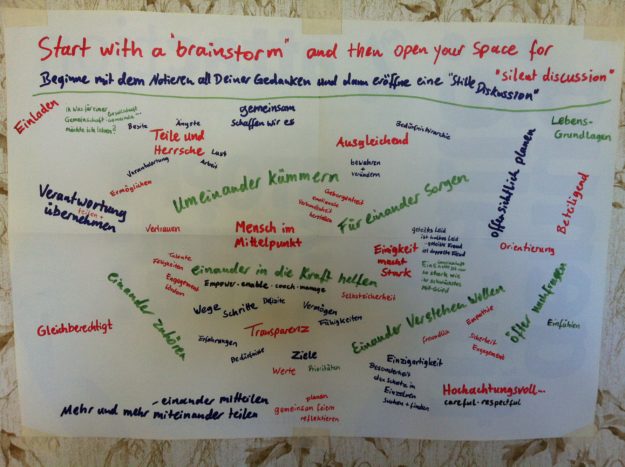 Start with a "brainstorm" and then open your space for
"silent discussion"
Beginne mit dem Notieren all Deiner Gedanken und dann eröffne eine "Stille
Diskussion"
Einladen
in was für einer
Gesellschaft
Gemeinschaft
möchte ich leben?
Besitz
Ängste
Teile und
Herrsche
Last
Arbeit
Verantwortung
Ermöglichen
gemeinsam
schaffen wir es
Ausgleichend
bewahren
+
verändern
Bedürfnishierarchie
Lebens-
Grundlagen
Offensichtlich planen
Beteiligend
Umeinander kümmern
Für einander Sorgen
Geborgenheit
emotionale
Verbundenheit
herstellen
Verantwortung
teilen +
übernehmen
Vertrauen
Mensch im
Mittelpunkt
geteiltes Leid
ist halbes Leid
- geteilte Freud
ist doppelte Freud
Einigkeit
macht
Stark
so stark wie
ihr schwächstes
Mitglied
Orientierung
Talente
Fähigkeiten
Engagement
fördern
einander in die Kraft helfen
Empower - enable - coach - manage
Selbstsicherheit
einander Zuhören
Wege
Schritte
Defizite
Vermögen
Fähigkeiten
Einander Verstehen Wollen
öfter nachfragen
Einfühlen
Gleichberechtigt
Transparenz
Erfahrungen
Bedürfnisse
Ziele
Werte
Prioritäten
Freundlich
Empathie
Sicherheit
Engagement
Einzigartigkeit
Besonderheit
den Schatz im
Einzelnen
suchen + finden
Hochachtungsvoll...
careful - respectful
- einander mitteilen
Mehr und mehr miteinander teilen
planen
gemeinsam feiern
reflektieren